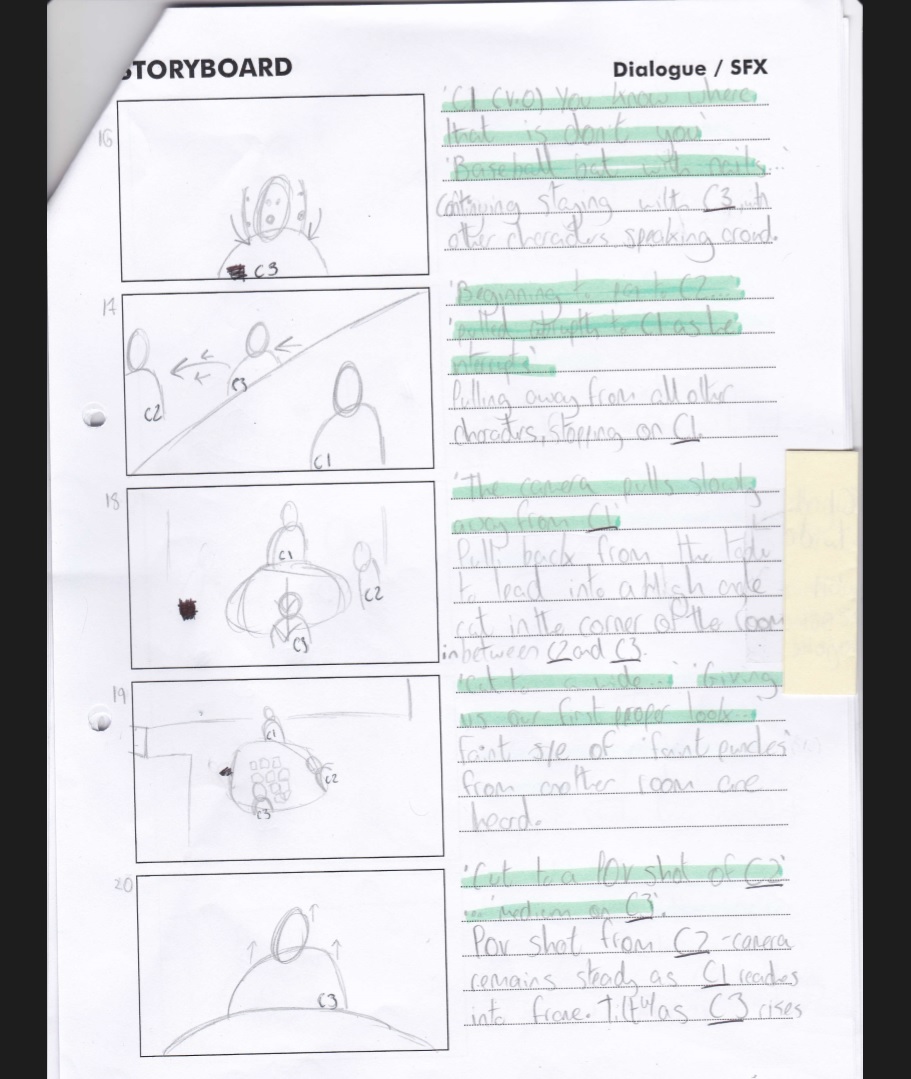 STORYBOARD
Dialogue / SFX
16
'C1 (V.O) You know where
that is don't you'
'Baseball bat with nails...'
Continuing staying with C3 with
other characters speaking around.
C3
17
'Beginning to pan to C2...
'pulled abruptly to C1 as he
interrupts'
Pulling away from all other
characters, stopping on C1
C2
C3
C1
18
'The camera pulls slowly
away from C1'
Pull back from the table
to lead into a High angle
cut in the corner of the room
in between C2 and C3.
C1
C2
C3
19
'Cut to a wide...' 'Giving
us our first proper look...'
Faint sfx of 'faint punches'
from another room are
heard.
C1
C2
C3
20
'Cut to a POV shot of C2'
...'medium on C3'.
POV shot from C2 - camera
remains steady as C1 reaches
into frame. Tilt as C3 rises
C3